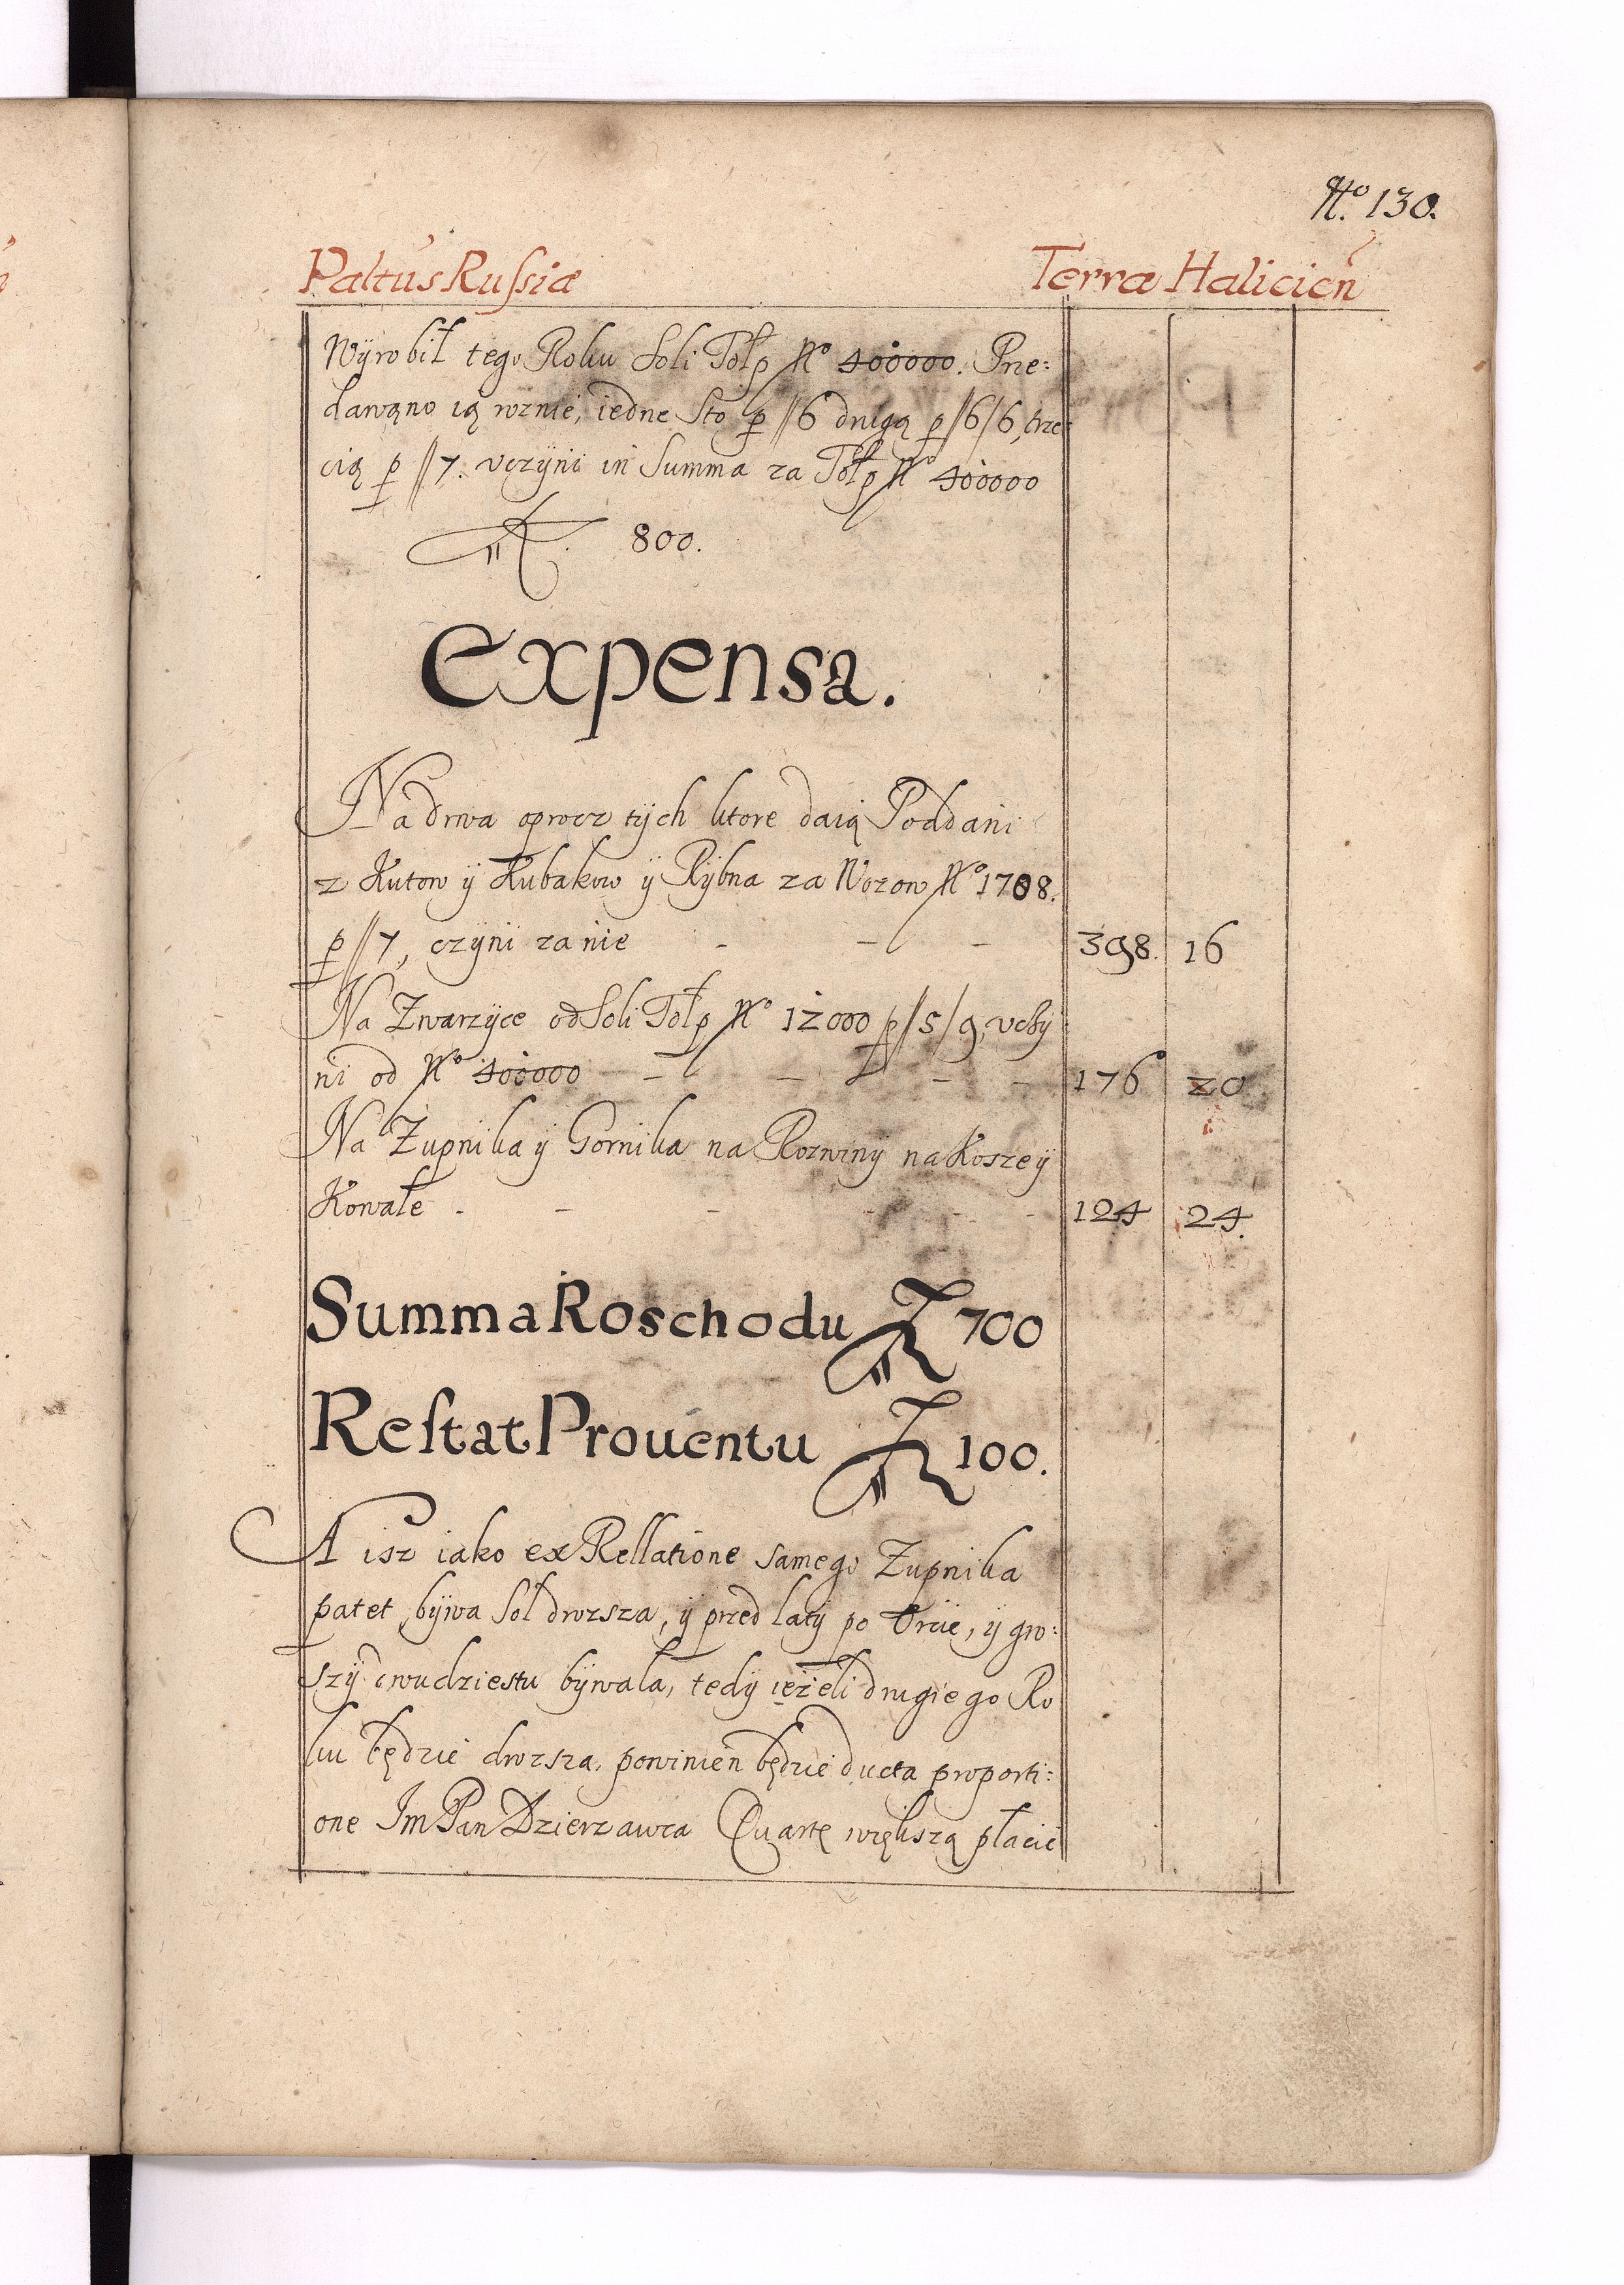 No. 130.
Paltus Russiæ Terræ Halicien
Wÿrobił tego Roku Soli Tołp No 400000. Prze:
dawąno ią roznie, iedne Sto p //6 drugą p /6/6, trze
cią p //7. vczÿni in Summa za Tołp No 400000
800.
Expensa.
Na drwa oprocz tÿch ktore daią Poddani
z Kutow ÿ Kubakow ÿ Rÿbna za Wozow No 1708.
p //7, czÿni za nie - - - 398. 16
Na Zwarzÿce od Soli Tołp No 12000 p //5/9, vczÿ
ni od No 400000 - - - - 176 20
Na Żupnika ÿ Gornika na Rozwinÿ na Kosze ÿ
Kowale - - - - - - 124 24.
Summa Roschodu 700
Restat Prouentu 100.
A isz iako ex Rellatione samego Zupnika
patet, bÿwa Sol drozsza, ÿ przed latÿ po Orcie, ÿ gro:
szÿ dwudziestu bÿwala, tedÿ ieżeli drugiego Ro
ku będzie drozsza, powinien będzie ducta proporti:
one Im Pan Dzierzawca Quartę większą płacic